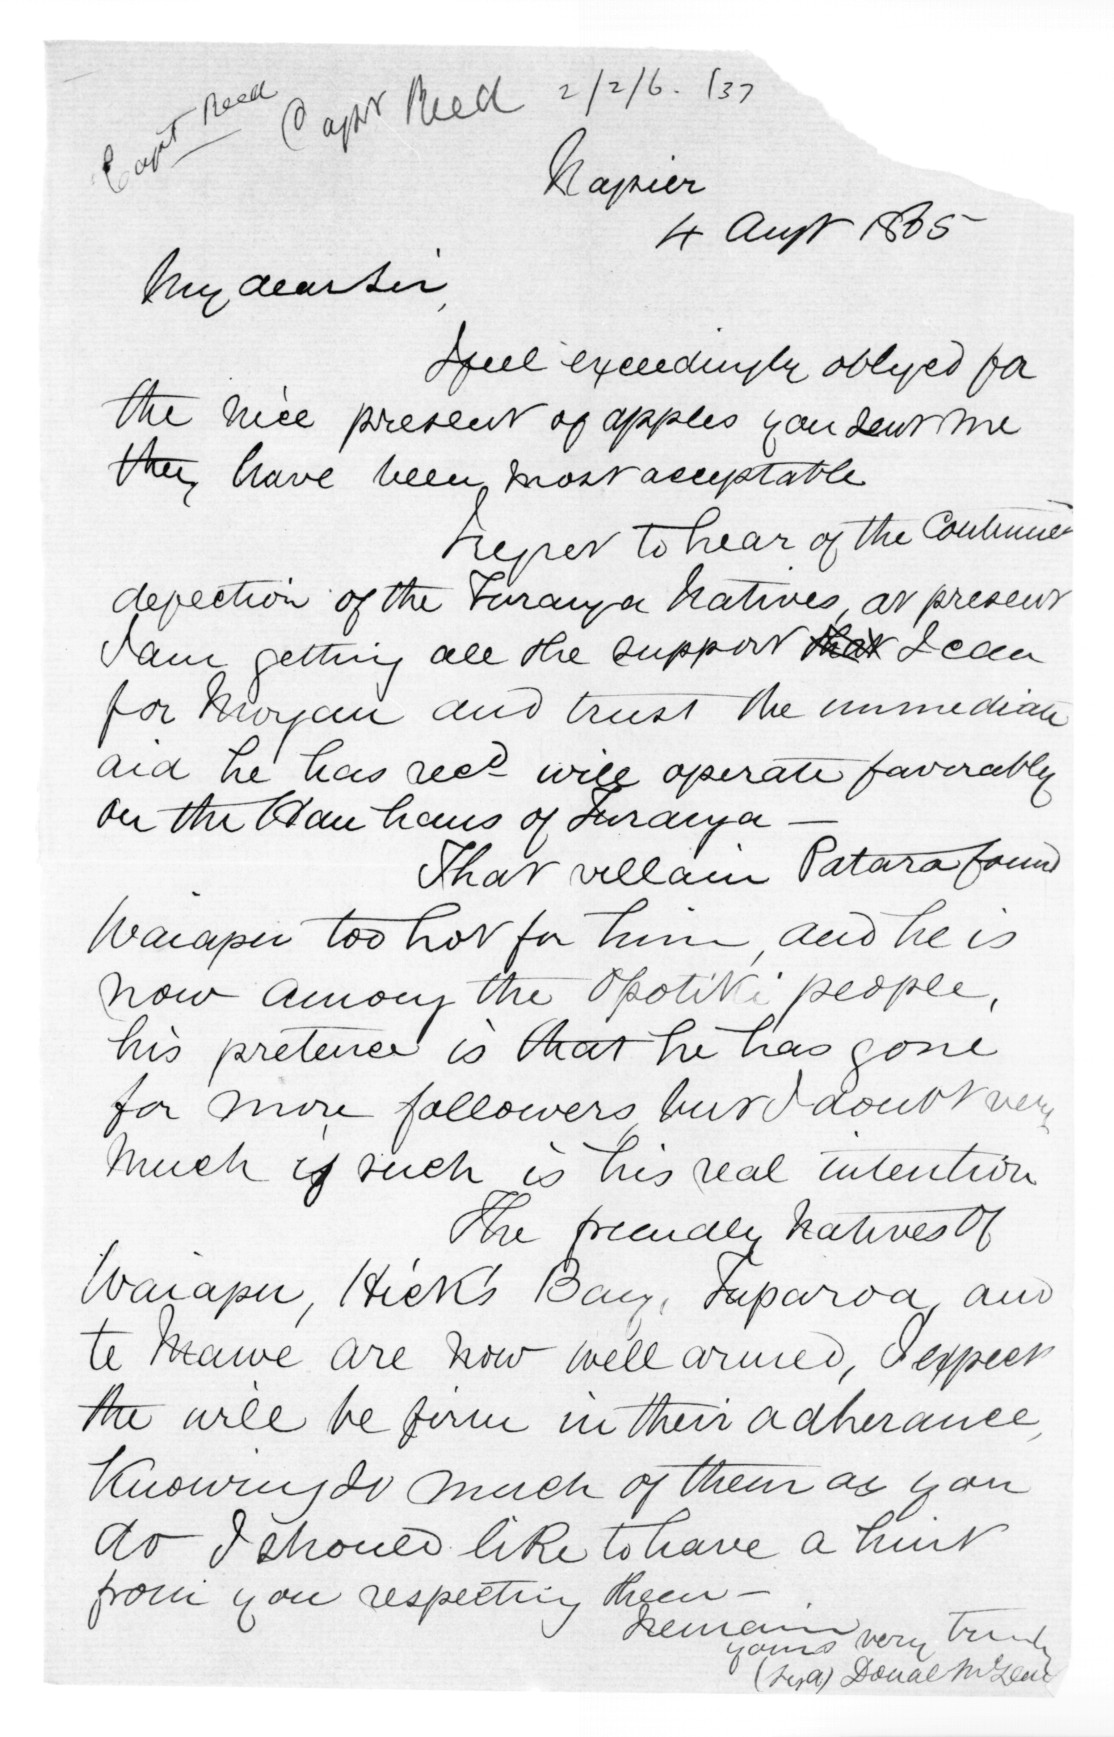 Capt Reed
Capt Reed 2/2/6. 137
Napier
4 Augt 1865
My dear Sir,
I feel exceedingly obliged for
the nice present of apples you sent me
they have been most acceptable
I regret to hear of the Continued
defection of the Turanga Natives, at present
I am getting all the support that I can
for Morgan and trust the immediate
aid he has recd will operate favorably
on the Hau haus of Turanga —
That villain Patara found
Waiapu too hot for him, and he is
now among the Opotiki people,
his pretence is that he has gone
for more followers, but I doubt very
much if such is his real intention
The friendly Natives of
Waiapu, Hick's Bay, Tuparoa, and
te Mawe are now well armed, I expect
the will be firm in their adherance,
Knowing so much of them as you
do I should like to have a hint
from you respecting them —
I remain
yours very truly
(sigd) Donald McLean